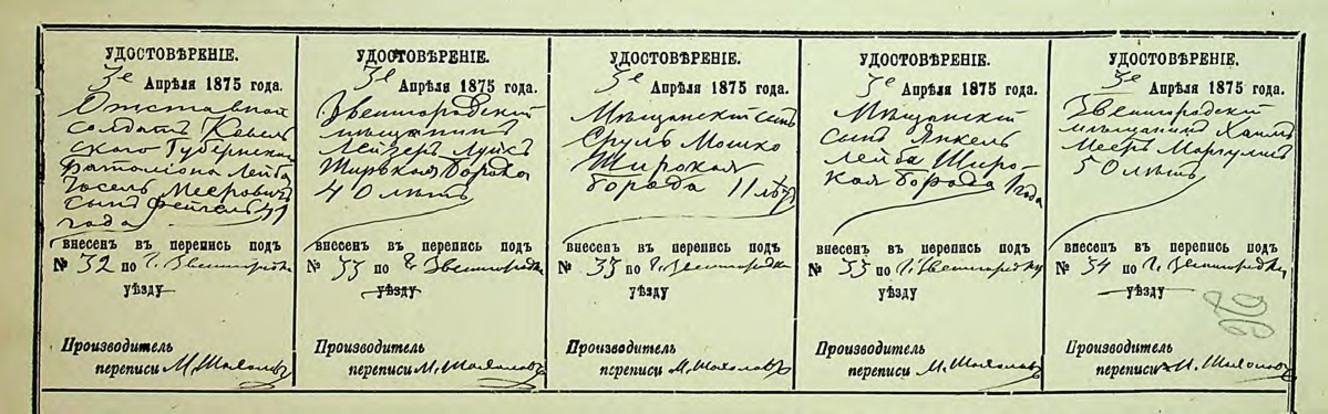 УДОСТОВѢРЕНІЕ.
3е Апрѣля 1875 года.
Отставной
солдатъ
ского Губернскаго
баталіона Лейба
Іосель Мееровичъ
сынъ 41
года
внесенъ въ перепись подъ
№ 32 по г. Звенигородкѣ
уѣзду
Производитель
переписи М.
УДОСТОВѢРЕНІЕ.
3е Апрѣля 1875 года.
Звенигородскій
мѣщанинъ
Лейзеръ
Широкая борода
40 лѣтъ
внесенъ въ перепись подъ
№ 33 по г. Звенигородкѣ
уѣзду
Производитель
переписи М.
УДОСТОВѢРЕНІЕ.
3е Апрѣля 1875 года.
Мѣщанскій сынъ
Сруль Мошко
Широкая
борода 11 лѣтъ
внесенъ въ перепись подъ
№ 33 по г. Звенигородкѣ
уѣзду
Производитель
переписи М.
УДОСТОВѢРЕНІЕ.
3е Апрѣля 1875 года.
Мѣщанскій
сынъ Янкель
Лейба Широ-
кая борода 1 года
внесенъ въ перепись подъ
№ 33 по г. Звенигородкѣ
уѣзду
Производитель
переписи М.
УДОСТОВѢРЕНІЕ.
3е Апрѣля 1875 года.
Звенигородскій
мѣщанинъ Хаимъ
Мееръ Маргулисъ
50 лѣтъ
внесенъ въ перепись подъ
№ 34 по г. Звенигородкѣ
уѣзду
Производитель
переписи М.